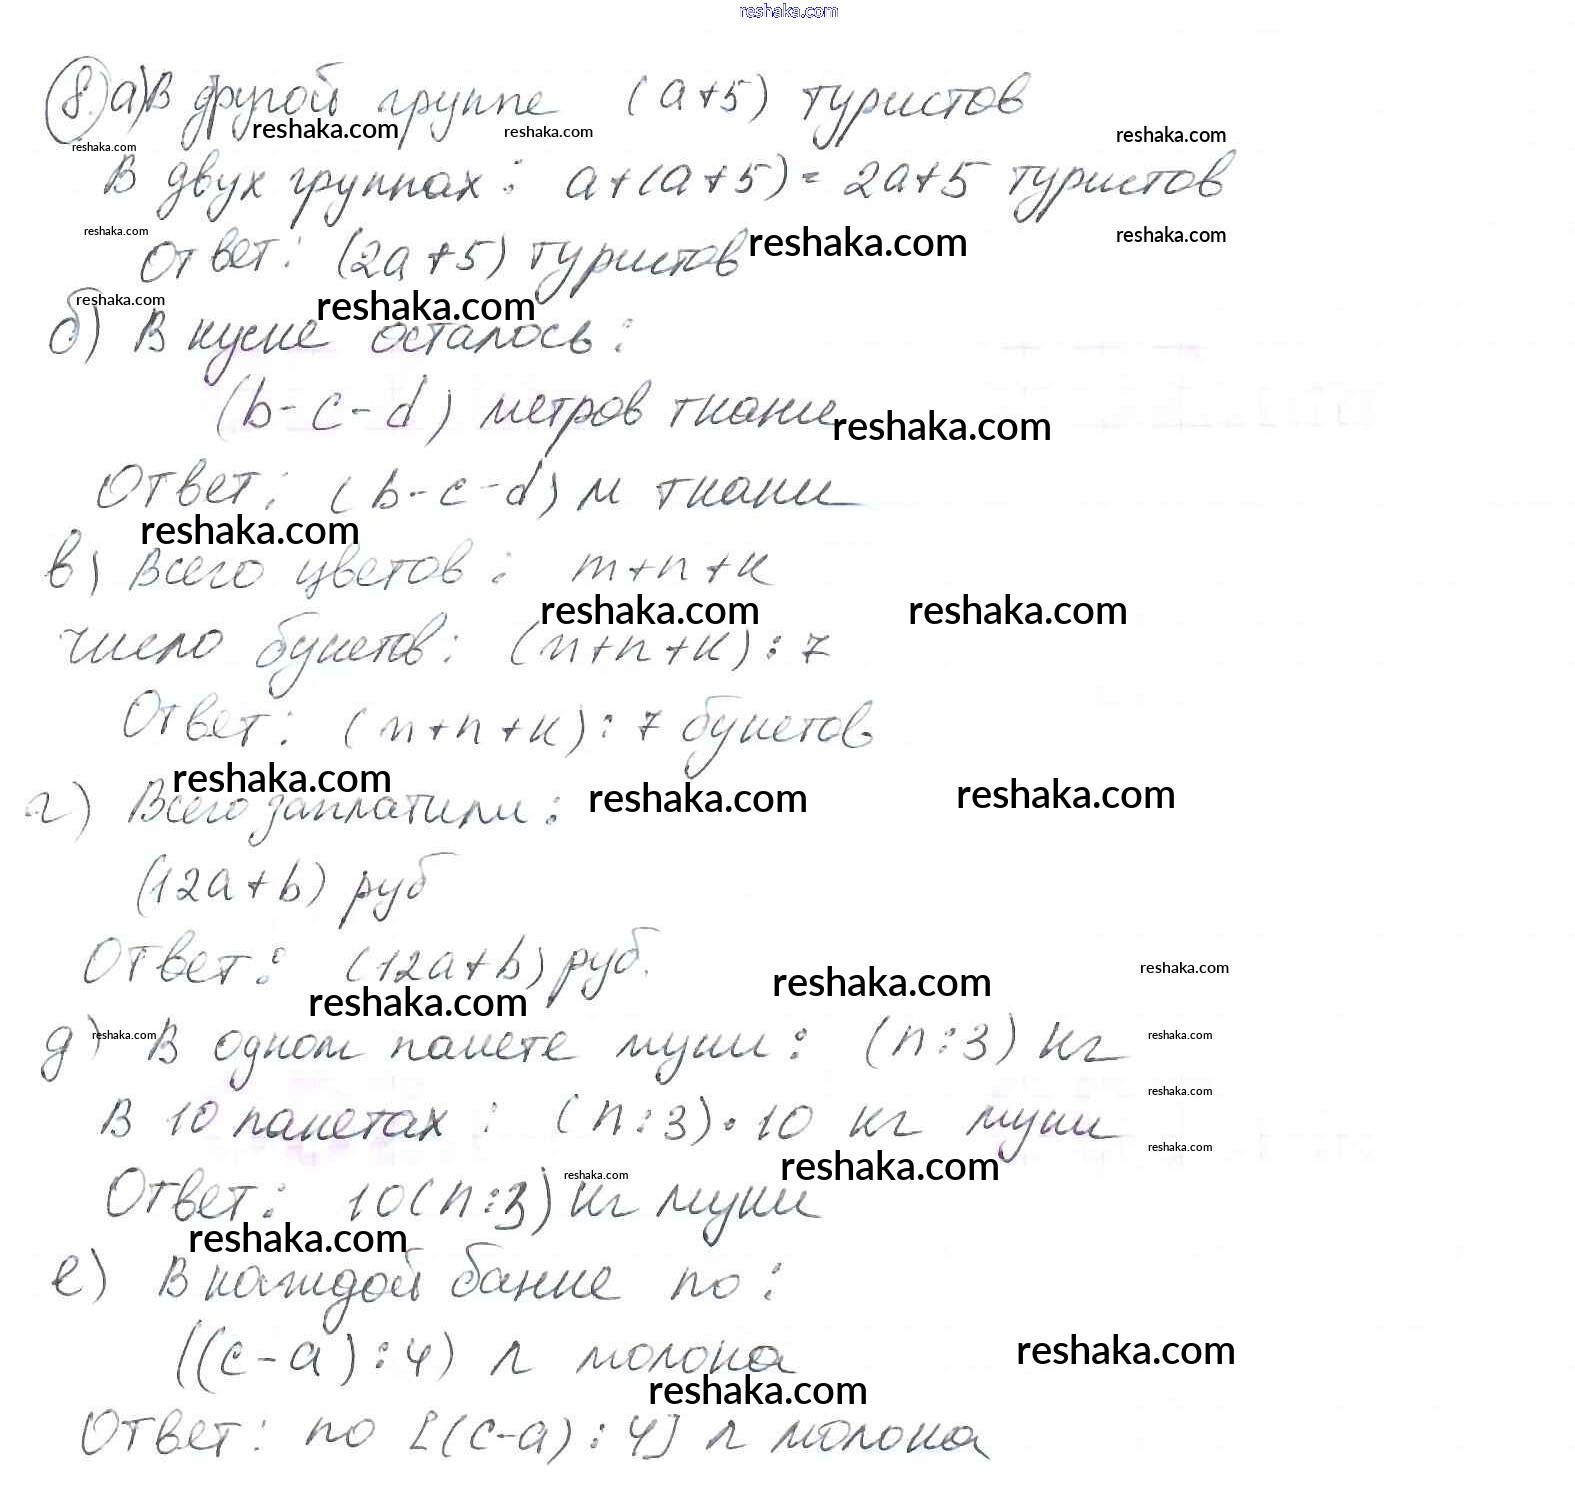 reshaka.com
8. а) В другой группе (a+5) туристов
reshaka.com reshaka.com reshaka.com reshaka.com
В двух группах : a+(a+5)= 2a+5 туристов
reshaka.com reshaka.com reshaka.com
Ответ: (2a+5) туристов
reshaka.com reshaka.com
б) В куске осталось:
(b-c-d) метров ткани
reshaka.com
Ответ: (b-c-d) м ткани
reshaka.com
в) Всего цветов: m+n+к
reshaka.com reshaka.com
число букетов: (m+n+к):7
Ответ: (m+n+к):7 букетов
reshaka.com reshaka.com reshaka.com
г) Всего заплатили:
(12a+b) руб
Ответ: (12a+b) руб.
reshaka.com reshaka.com reshaka.com
reshaka.com reshaka.com
д) В одном пакете муки: (n:3) кг
reshaka.com
В 10 пакетах : (n:3)·10 кг муки
reshaka.com reshaka.com reshaka.com
Ответ: 10(n:3) кг муки
reshaka.com
е) В каждой банке по:
((c-a):4) л молока
reshaka.com reshaka.com
Ответ: по [(c-a):4] л молока